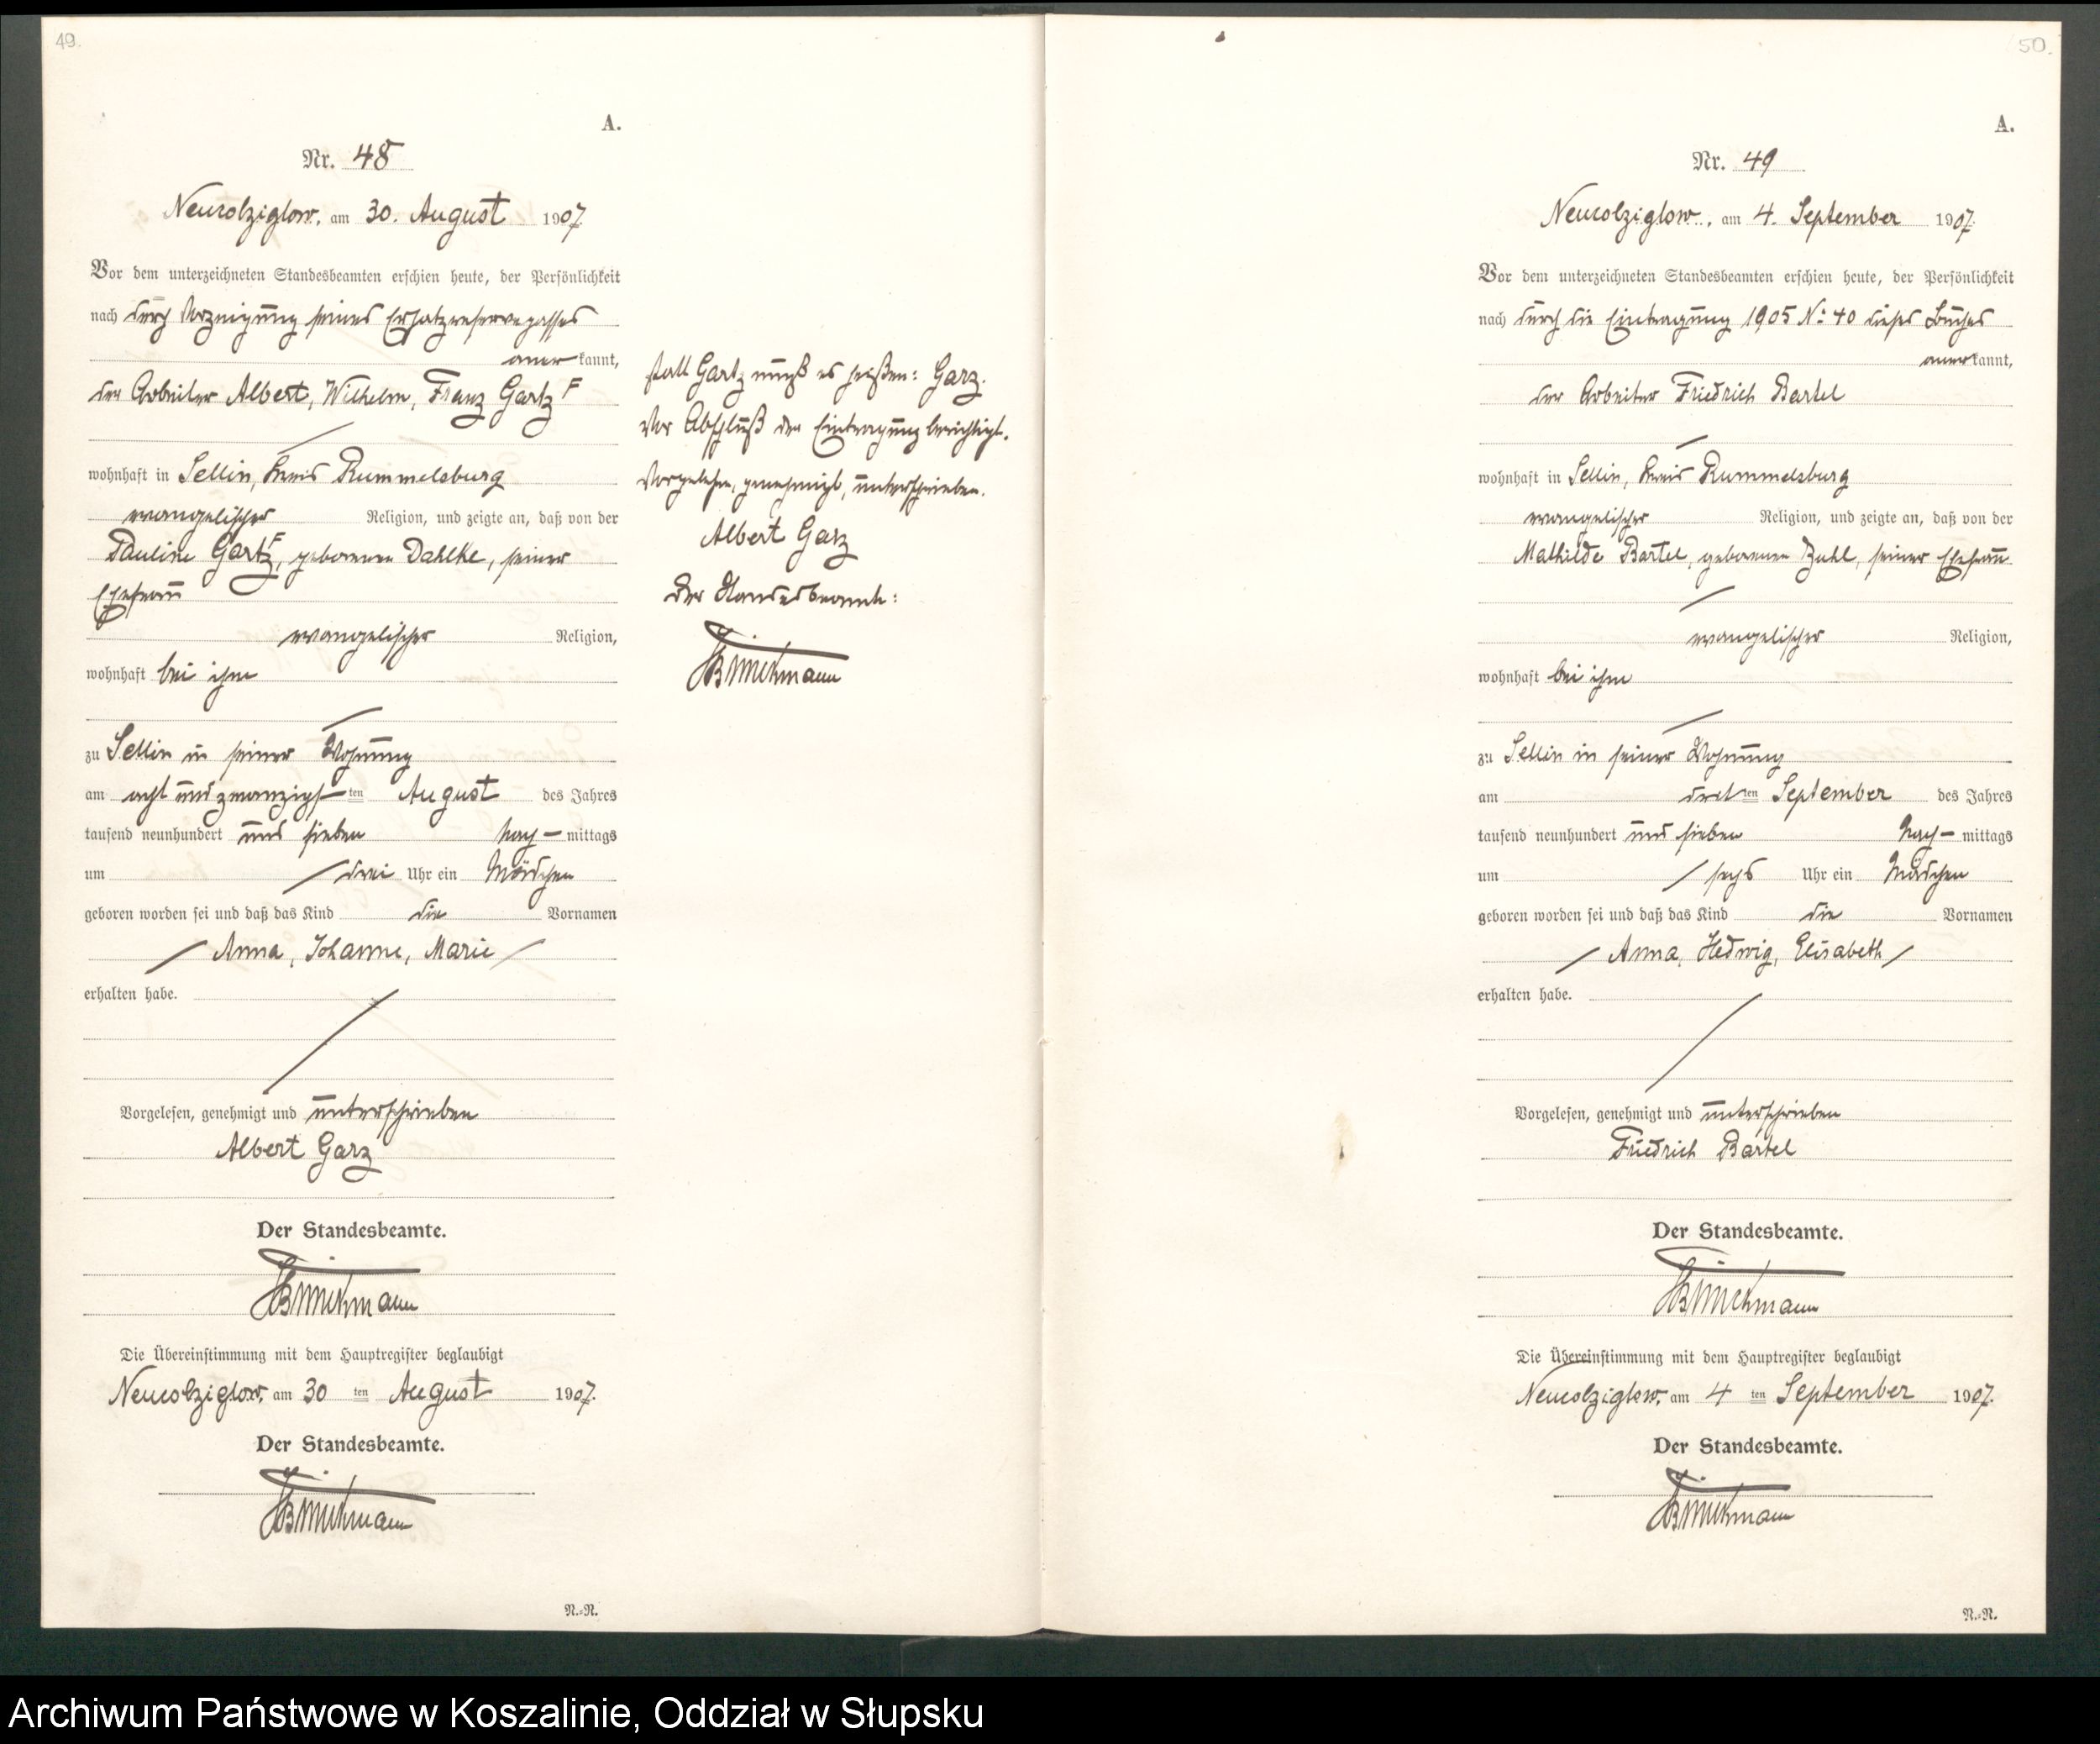 49.
A.
Nr. 48
Neucolziglow, am 30. August 1907.
Vor dem unterzeichneten Standesbeamten erschien heute, der Persönlichkeit
nach durch Vorzeigung seines Ersatzreservepasses
anerkannt,
der Arbeiter Albert, Wilhelm, Franz Gartz F
wohnhaft in Sellin, Kreis Rummelsburg
evangelischer Religion, und zeigte an, daß von der
Pauline Gartz F, geborenen Dahlke, seiner
Ehefrau
evangelischer Religion,
wohnhaft bei ihm
zu Sellin in seiner Wohnung
am acht und zwanzigsten August des Jahres
tausend neunhundert und sieben Nach-mittags
um drei Uhr ein Mädchen
geboren worden sei und daß das Kind die Vornamen
Anna, Johanne, Marie
erhalten habe.
Vorgelesen, genehmigt und unterschrieben
Albert Garz
Der Standesbeamte.
Brückmann
Die Übereinstimmung mit dem Hauptregister beglaubigt
Neucolziglow, am 30 ten August 1907.
Der Standesbeamte.
Brückmann
N.=N.
statt Gartz muß es heißen: Garz.
Vor Abschluß der Eintragung berichtigt.
Vorgelesen, genehmigt, unterschrieben.
Albert Garz
Der Standesbeamte:
Brückmann
50.
A.
Nr. 49
Neucolziglow, am 4. September 1907.
Vor dem unterzeichneten Standesbeamten erschien heute, der Persönlichkeit
nach durch die Eintragung 1905 No: 40 dieses Buches
anerkannt,
der Arbeiter Friedrich Bartel
wohnhaft in Sellin, Kreis Rummelsburg
evangelischer Religion, und zeigte an, daß von der
Mathilde Bartel, geborenen Zuhl, seiner Ehefrau
evangelischer Religion,
wohnhaft bei ihm
zu Sellin in seiner Wohnung
am dritten September des Jahres
tausend neunhundert und sieben Nach-mittags
um sechs Uhr ein Mädchen
geboren worden sei und daß das Kind die Vornamen
Anna, Hedwig, Elisabeth
erhalten habe.
Vorgelesen, genehmigt und unterschrieben
Friedrich Bartel
Der Standesbeamte.
Brückmann
Die Übereinstimmung mit dem Hauptregister beglaubigt
Neucolziglow, am 4 ten September 1907.
Der Standesbeamte.
Brückmann
N.=N.
Archiwum Państwowe w Koszalinie, Oddział w Słupsku